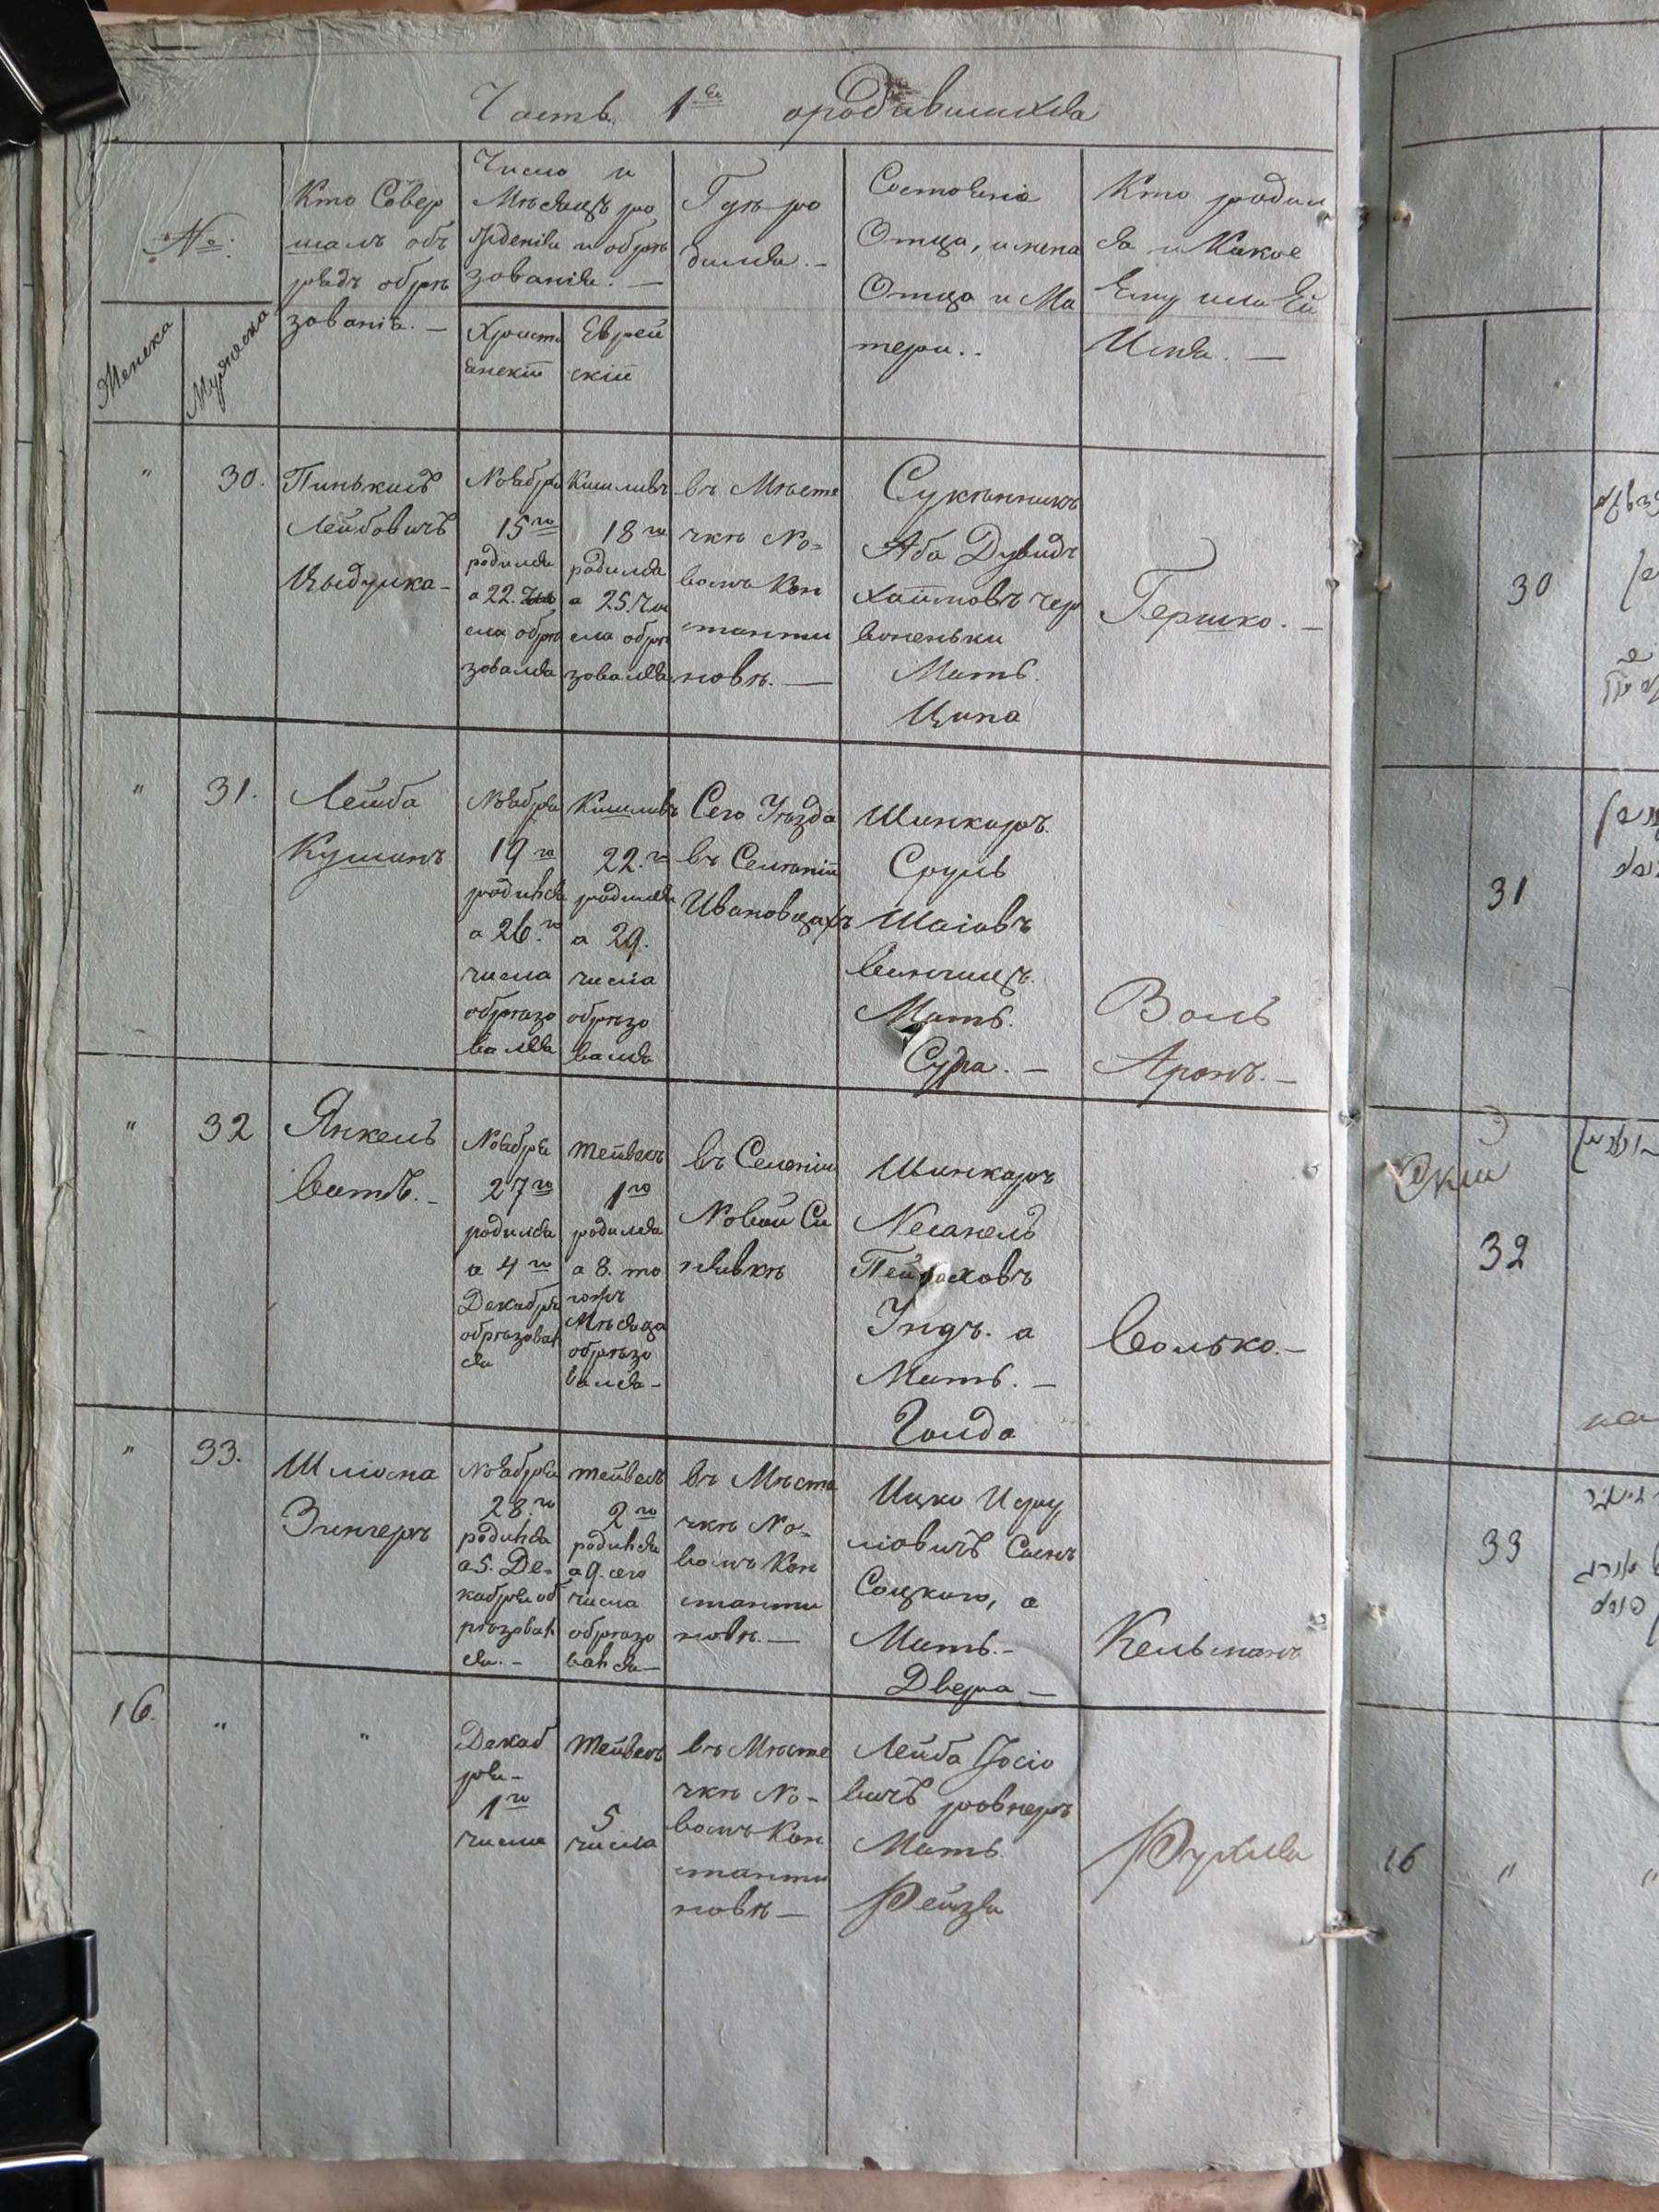 Часть 1ая ородившихся
№:
Женска
Мужеска
Кто Совер
шалъ об
рядъ обрѣ
зованія. —
Число и
Мѣсяцъ ро
жденія и обрѣ
зованія. —
Христі
Анскій
Еврей
скій
Гдѣ ро
дился. –
Состояніе
Отца, имена
Отца и Ма
тери..
Кто родил
ся и Какое
Ему или Ей
Имя. —
" 30.
Пинькасъ
Лейбовичъ
Цыдулка-
Ноября
15го
родился
а 22. Чи
сла обрѣ
зовался
Кишливъ
18го
родился
а 25. Чи
сла обрѣ
зовался
въ Мѣсте
чкѣ Но=
вомъ Кон
станти
новѣ. —
Сукѣнникъ
Аба Дувидъ
Хаимовъ Чер
воненьки
Мать.
Ципа
Гершко. –
" 31.
Лейба
Кушнъ
Ноября
19го
родился
а 26.го
числа
обрѣзо
вался
Кишливъ
22.го
родился
а 29.
числа
обрѣзо
вался
Сего Уѣзда
въ Селѣніи
Ивановцахъ
Шинкаръ.
Сруль
Шаіовъ
Винницъ.
Мать.
Сура. –
Волъ
Аронъ. –
" 32
Янкель
Ватъ. –
Ноября
27го
родился
а 4го
Декабря
обрѣзовал
ся
Тейвесъ
1го
родился
а 8. то
гожъ
Мѣсяца
обрѣзо
вался –
въ Селеніи
Новой Си
нявкѣ
Шинкаръ
Несанель
Пейсаховъ
Ундъ. а
Мать. –
Голда
Волько. –
" 33.
Шліома
Зингеръ
Ноября
28.го
родился
а 5. Де=
кабря об
рѣзовал
ся. –
Тейвесъ
2го
родился
а 9. сего
числа
обрѣзо
вался –
въ Мѣсте
чкѣ Но=
вомъ Кон
станти
новѣ. —
Ицко Исру
ліовичъ Сынъ
Соцкого, а
Мать. –
Двера –
Кельманъ
16. " "
Декаб
ря –
1го
числа
Тейвесъ
5
числа
въ Мѣсте
чкѣ Но-
вомъ Кон
станти
новѣ —
Лейба Іосіо
вичъ ровнеръ
Мать.
Рейзя
Рухля
30
31
32
33
16 " "